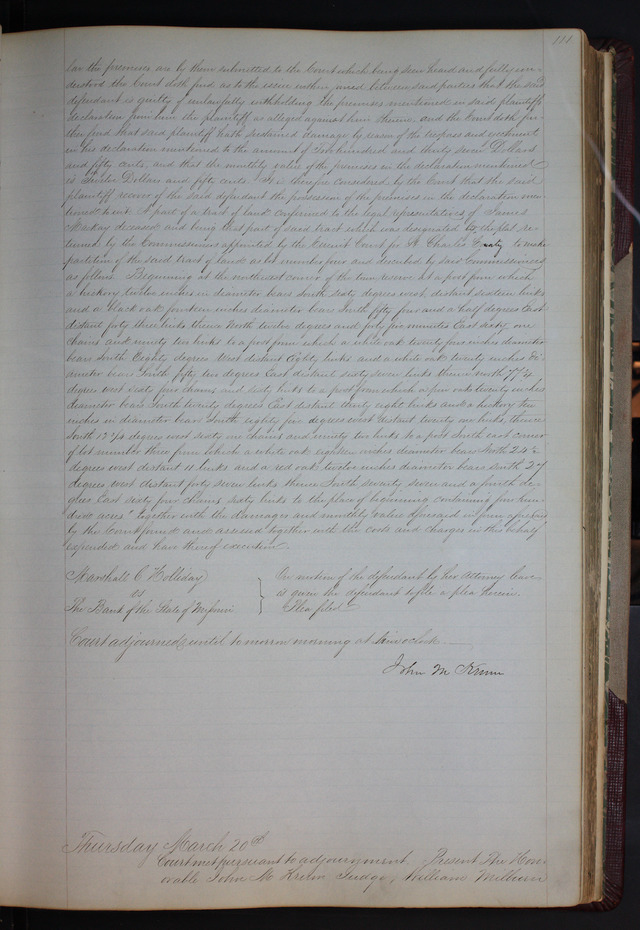 111
law the premises are by them submitted to the Court which being seen heard and fully un-
derstood the Court doth find as to the issue within joined between said parties that the said
defendant is guilty of unlawfully withholding the premises mentioned in said plaintiff's
declaration from him the plaintiff as alleged against him therein and the Court doth fur-
ther find that said plaintiff hath sustained damage by reason of the trespass and ejectment
in his declaration mentioned to the amount of Two hundred and thirty seven Dollars
and fifty cents, and that the monthly value of the premises in the declaration mentioned
is Twelve Dollars and fifty cents. It is therefore considered by the Court that the said
plaintiff recover of the said defendant the possession of the premises in the declaration men-
tioned to wit: A part of a tract of land confirmed to the legal representatives of James
Mackay deceased and being that part of said tract which was designated by the plat re-
turned by the Commissioners appointed by the Circuit Court for St Charles County to make
partition of the said tract of land as lot number four and located by said Commissioners
as follows. Beginning at the northwest corner of the two at a post from which
a hickory twelve inches in diameter bears South sixty degrees west, distant sixteen links
and a black oak fourteen inches diameter bears South fifty four and a half degrees East
distant forty three links thence North twelve degrees and forty five minutes East sixty one
chains and ninety two links to a post from which a white oak twenty five inches diameter
bears South Eighty degrees West distant Eighty links and a white oak twenty inches di-
ameter bears South fifty two degrees East distant sixty seven links thence north 77 1/4
degrees west sixty four chains and sixty links to a post from which a oak twenty inches
diameter bears South twenty degrees East distant thirty eight links and a hickory ten
inches in diameter bears South eighty five degrees west distant twenty one links, thence
South 12 3/4 degrees west sixty one chains and ninety two links to a post South east corner
of lot number three from which a white oak eighteen inches diameter bears North 24 1/2
degrees west distant 11 links and a red oak twelve inches diameter bears South 27
degrees west distant forty seven links thence South seventy seven and a fourth de-
grees East sixty four chains sixty links to the place of beginning containing four hun-
dred acres" together with the damages and monthly value aforesaid in form aforesaid
by the Court found and assessed together with the costs and charges in this behalf
expended and have thereof execution.
Marshall C Holliday } On motion of the defendant by her attorney leave
vs is given the defendant to file a plea herein.
The Bank of the State of Missouri Plea filed
Court adjourned until tomorrow morning at o'clock.
John M Krum
Thursday March 20th
Court met pursuant to adjournment. Present The Hon-
orable John M Krum Judge, William Milburn